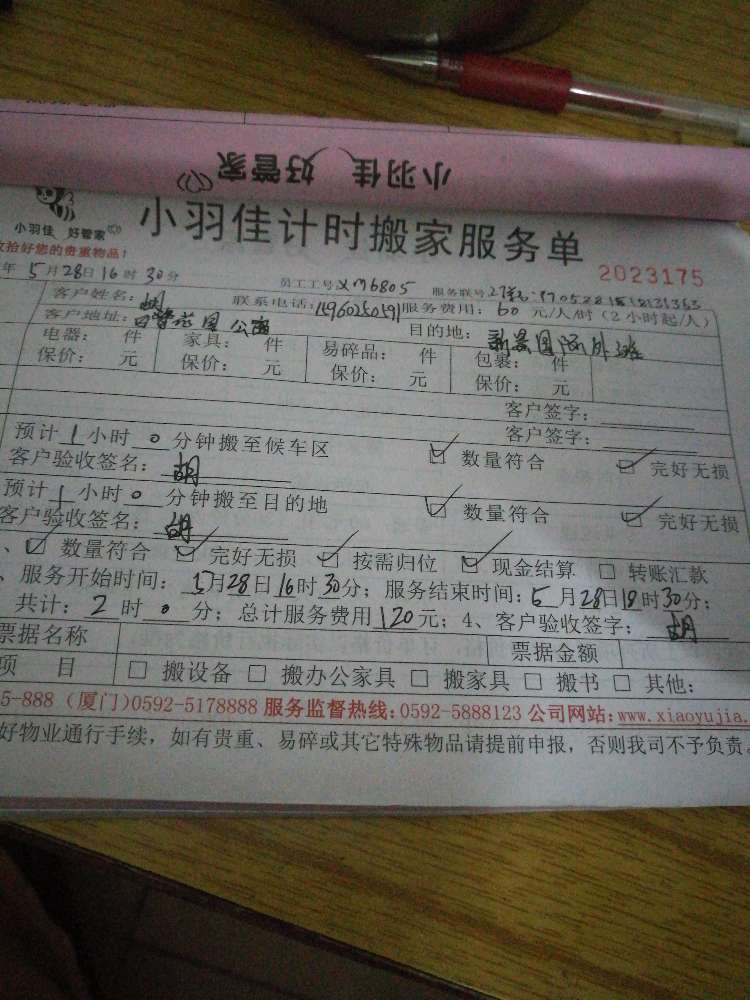 小羽佳 好管家
小羽佳 好管家
小羽佳计时搬家服务单
收拾好您的贵重物品!
2023175
年5月28日16时30分 员工工号XM6805 服务联号
客户姓名:胡 联系电话:15960250591 服务费用:60元/人/时(2小时起/人)
客户地址: 公寓 目的地:新景国际外滩
电器: 件 家具: 件 易碎品: 件 包裹: 件
保价: 元 保价: 元 保价: 元 保价: 元
客户签字:
客户签字:
预计1小时0分钟搬至候车区 ☑ 数量符合 ☑ 完好无损
客户验收签名:胡
预计1小时0分钟搬至目的地 ☑ 数量符合 ☑ 完好无损
客户验收签名:胡
、☑ 数量符合 ☑ 完好无损 ☑ 按需归位 ☑ 现金结算 □ 转账汇款
、服务开始时间:5月28日16时30分;服务结束时间:5月28日18时30分;
共计:2时0分;总计服务费用120元;4、客户验收签字:胡
票据名称 票据金额
项 目 □ 搬设备 □ 搬办公家具 □ 搬家具 □ 搬书 □ 其他:
5-888 (厦门)0592-5178888 服务监督热线:0592-5888123 公司网站:www.xiaoyujia.
好物业通行手续,如有贵重、易碎或其它特殊物品请提前申报,否则我司不予负责。